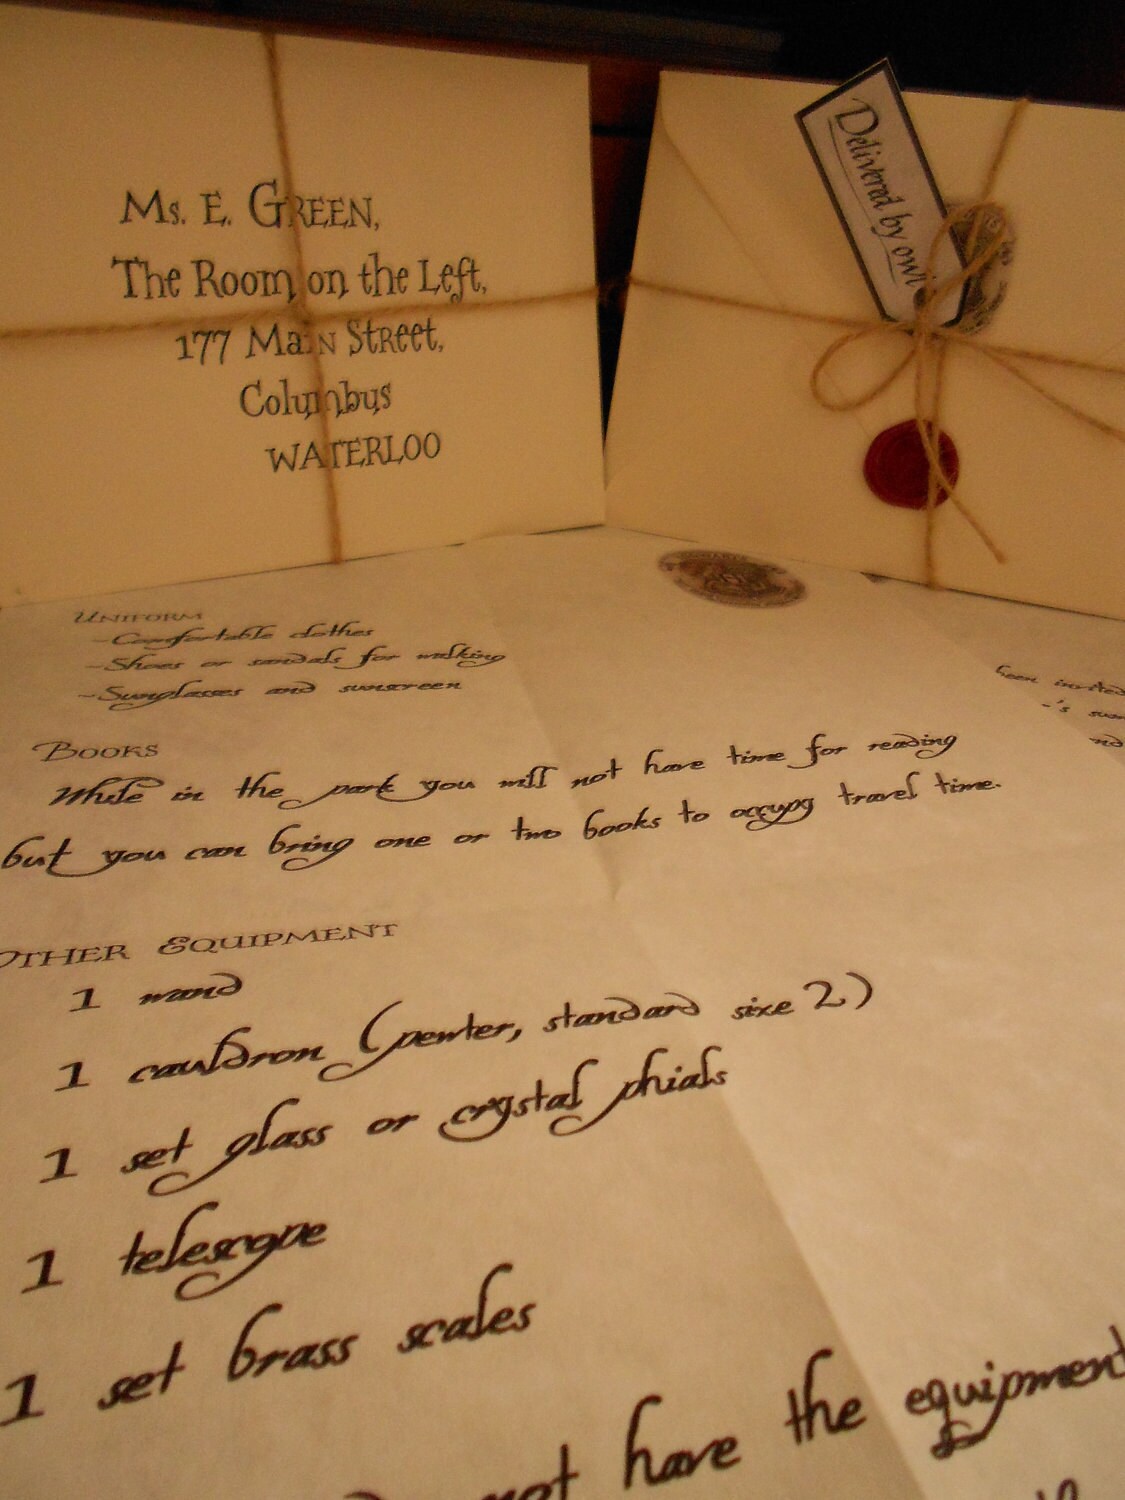 Ms. E. GREEN,
The Room on the Left,
177 Main Street,
Columbus
WATERLOO
Delivered by owl
UNIFORM
-Comfortable clothes
-Shoes or sandals for walking
-Sunglasses and sunscreen
BOOKS
While in the park you will not have time for reading
but you can bring one or two books to occupy travel time.
OTHER EQUIPMENT
1 wand
1 cauldron (pewter, standard size 2)
1 set glass or crystal phials
1 telescope
1 set brass scales
not have the equipment
been invited